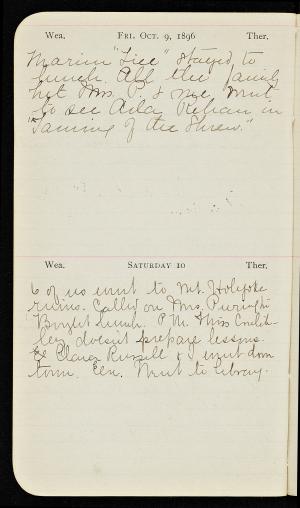 Wea. FRI. OCT. 9, 1896 Ther.
Marion "Lice" stayed to
lunch. All the family
but Mrs. P. & me went
to see Ada Rehan in
"Taming of the Shrew."
Wea. SATURDAY 10 Ther.
6 of us went to Mt. Holyoke
ruins. Called on Mrs. Purington
Bright lunch. P.M. Miss
ley doesn't prepare lessons.
Clara Russell & I went down
town. Eve. Went to Library.